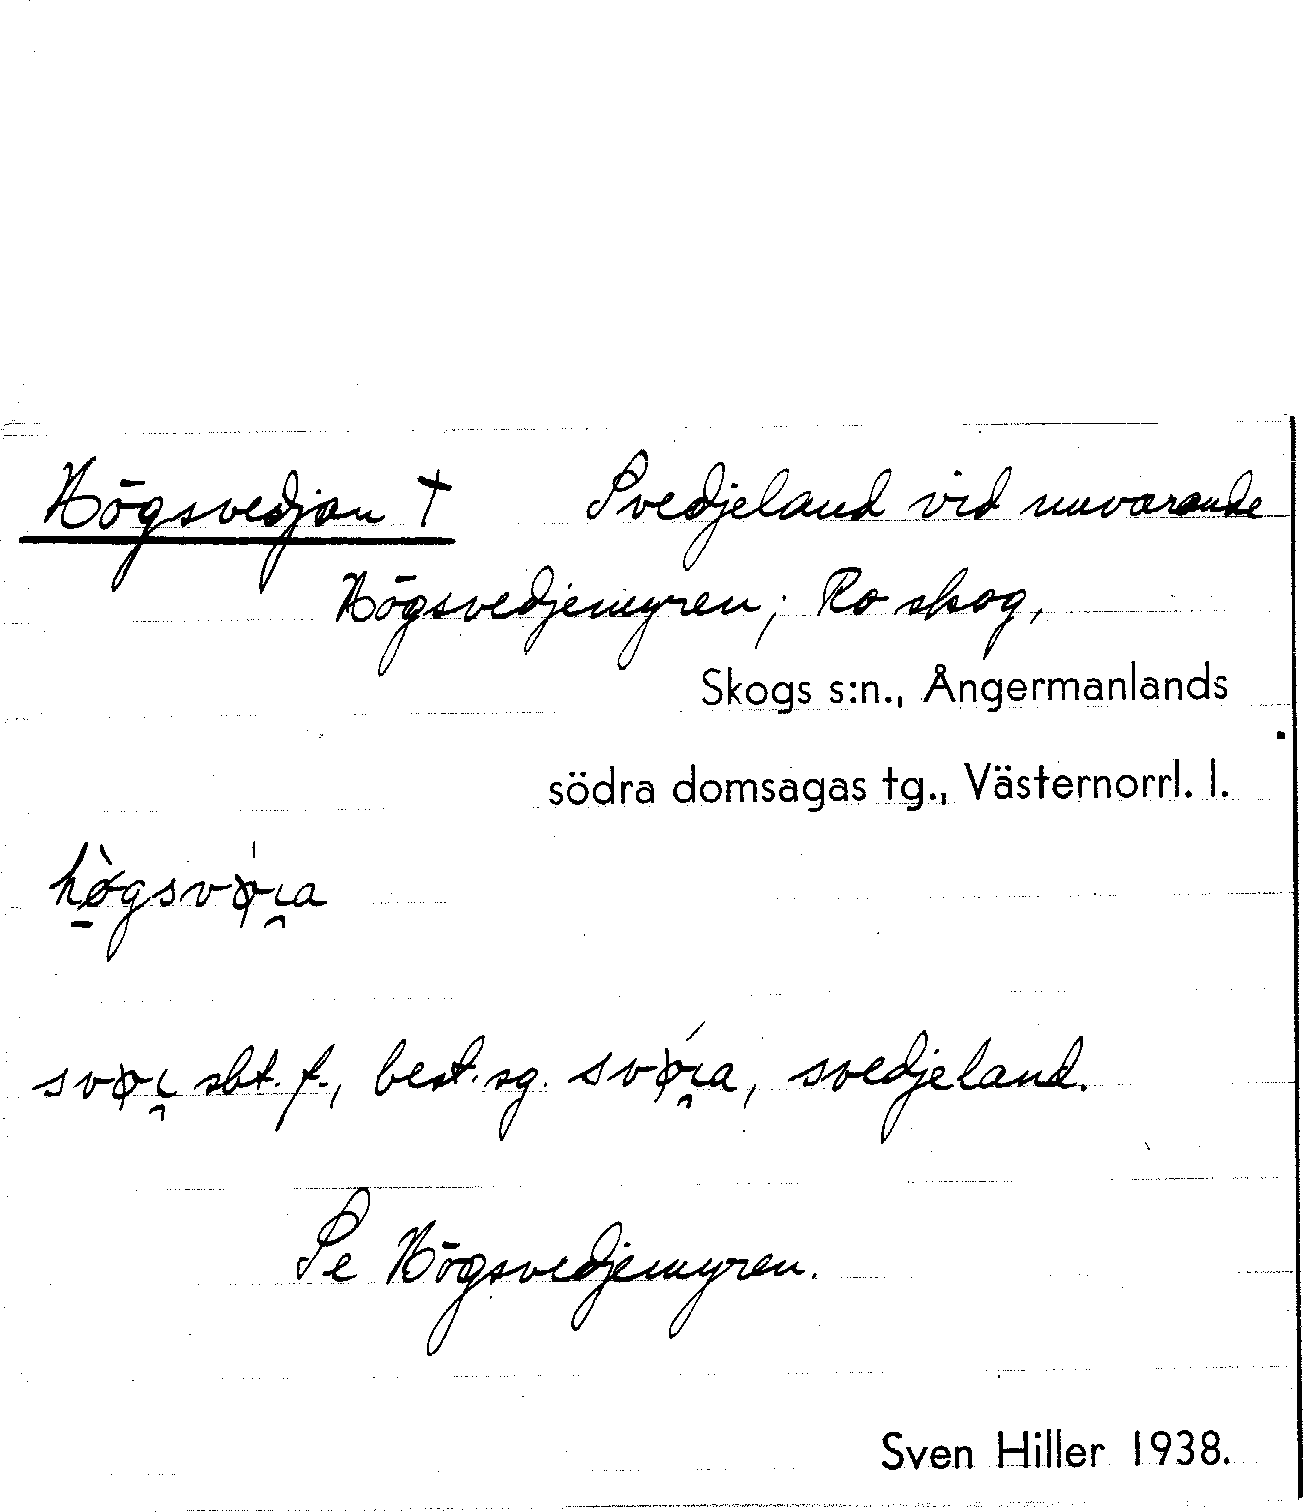 Högsvedjan † Svedjeland vid nuvarande
Högsvedjemyren; Ro skog,
Skogs s:n., Ångermanlands
södra domsagas tg., Västernorrl. l.
sbt. f., best. sg. svedjeland.
Se Högsvedjemyren.
Sven Hiller 1938.